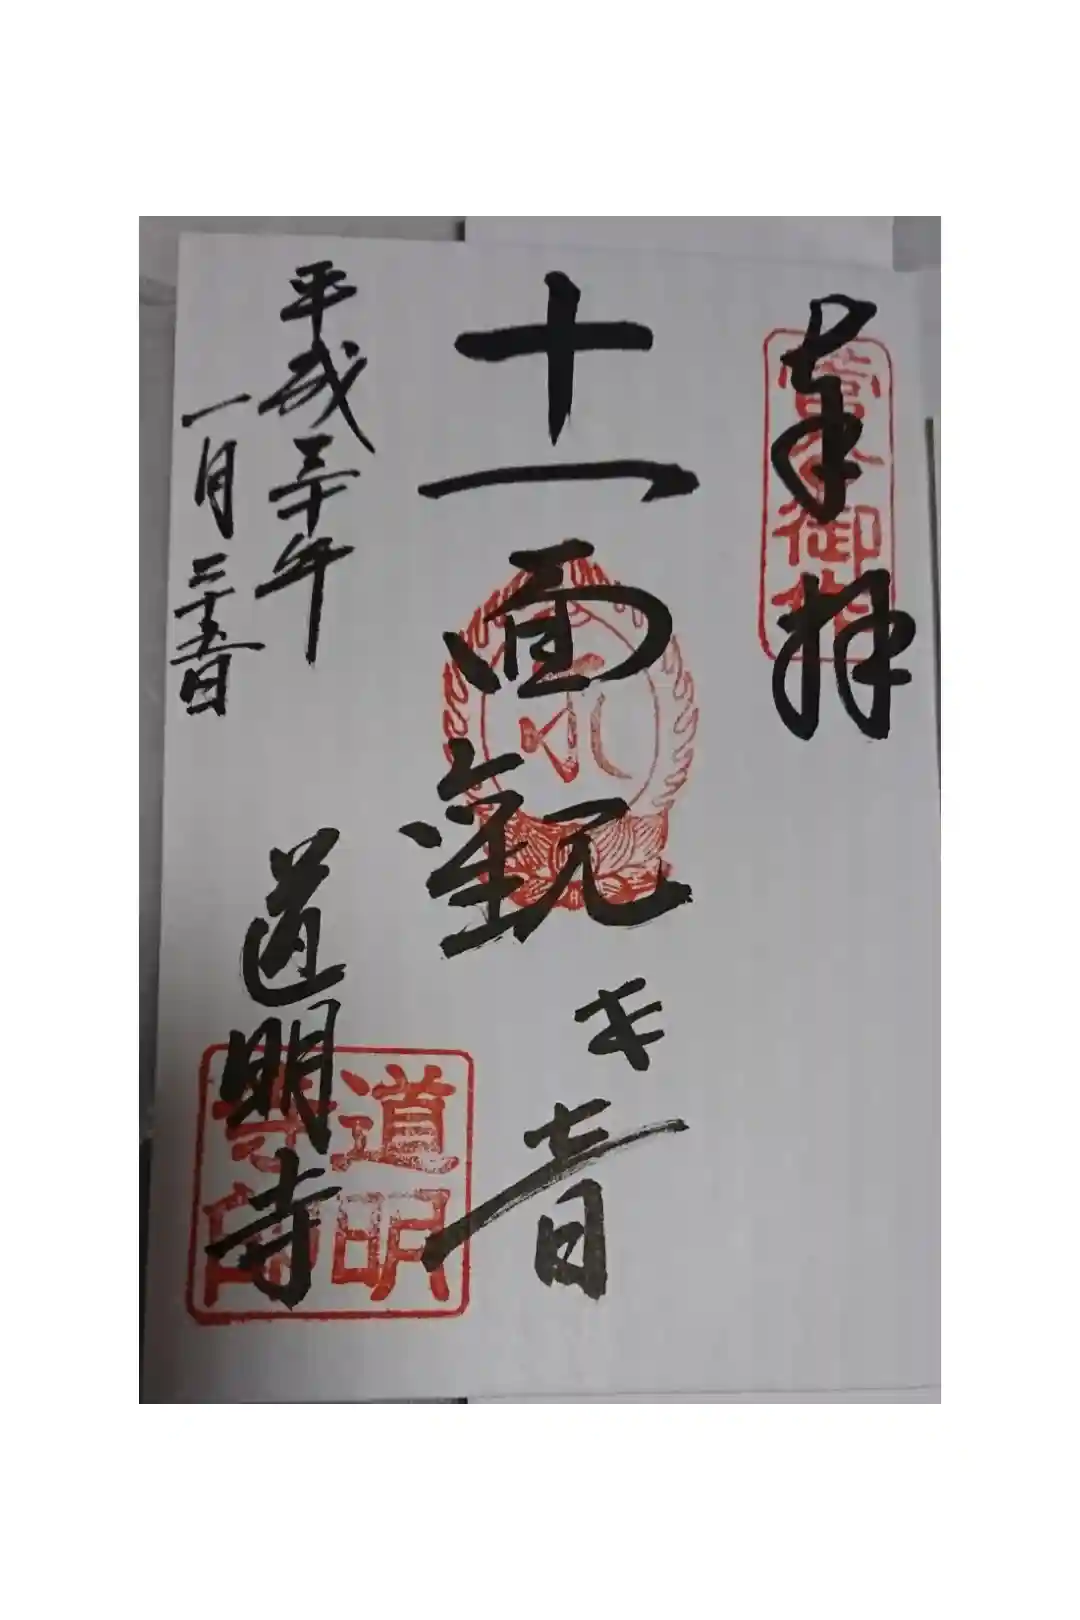 奉拝
菅公御作
十一面観世音
平成三十年
一月二十五日
道明寺
道明